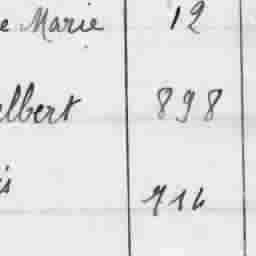 e Marie 12
elbert 898
is 714